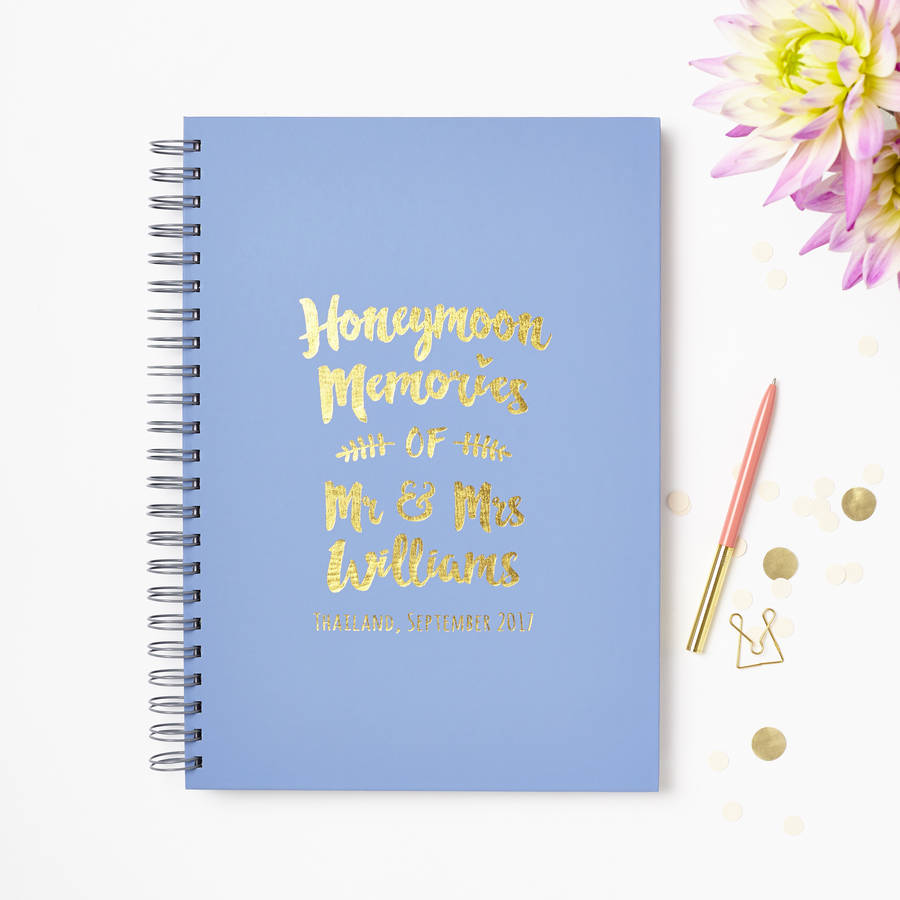 Honeymoon
Memories
OF
Mr & Mrs
Williams
THAILAND, SEPTEMBER 2017